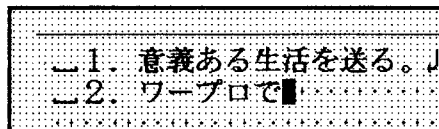 1. 意義ある生活を送る。
2. ワープロで